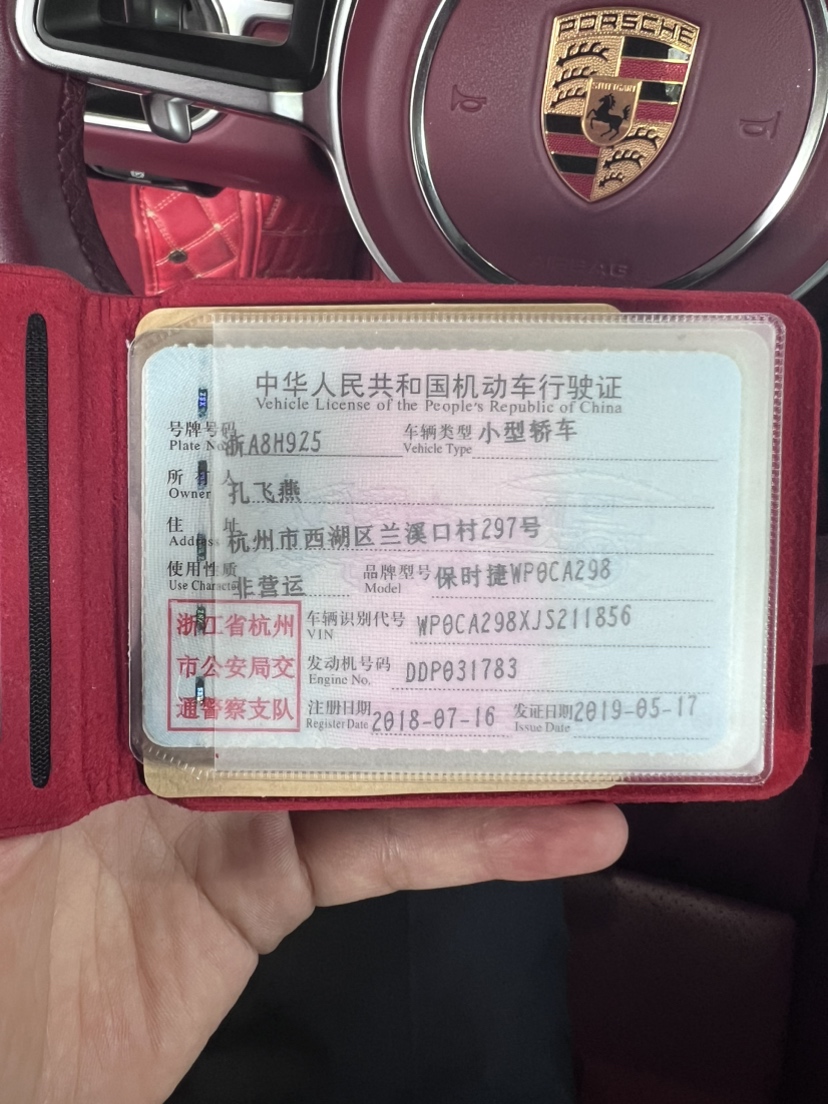 PORSCHE
STUTTGART
AIRBAG
中华人民共和国机动车行驶证
Vehicle License of the People's Republic of China
号牌号码 浙A8H925 车辆类型 小型轿车
Plate No. Vehicle Type
所有人 孔飞燕
Owner
住址 杭州市西湖区兰溪口村297号
Address
使用性质 非营运 品牌型号 保时捷WP0CA298
Use Character Model
浙江省杭州
市公安局交
通警察支队
车辆识别代号 WP0CA298XJS211856
VIN
发动机号码 DDP031783
Engine No.
注册日期 2018-07-16 发证日期 2019-05-17
Register Date Issue Date